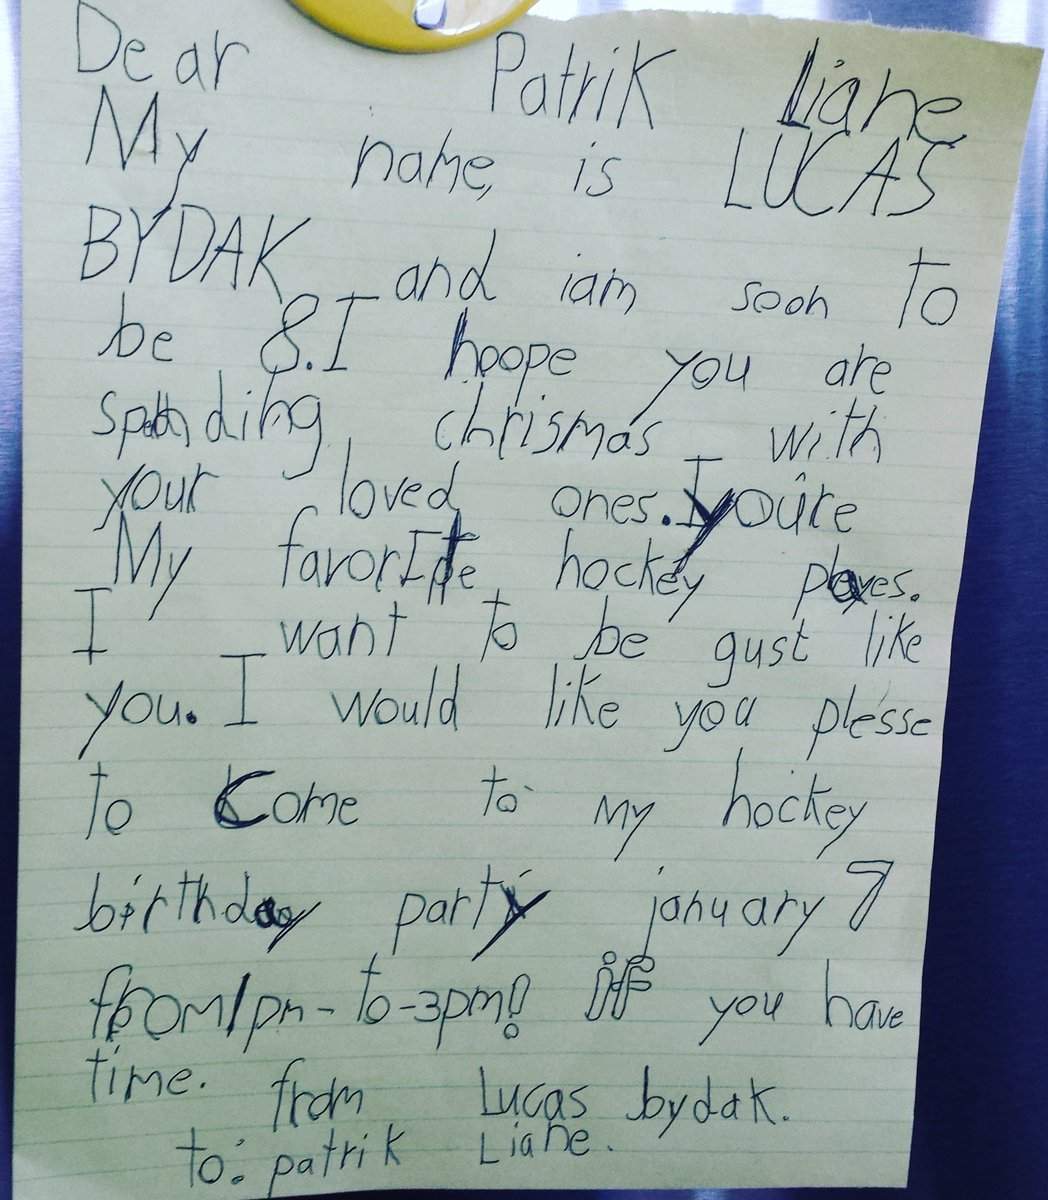 Dear Patrik Liane
My name, is LUCAS
BYDAK and iam soon to
be 8. I hoope you are
spending chrismas with
your loved ones. I you're
My favorIte hockey playes.
I want to be gust like
you. I would like you plesse
to Come to my hockey
birthday party january 7
from 1pm-to-3pm! if you have
time. from Lucas bydak.
to: patrik Liane.